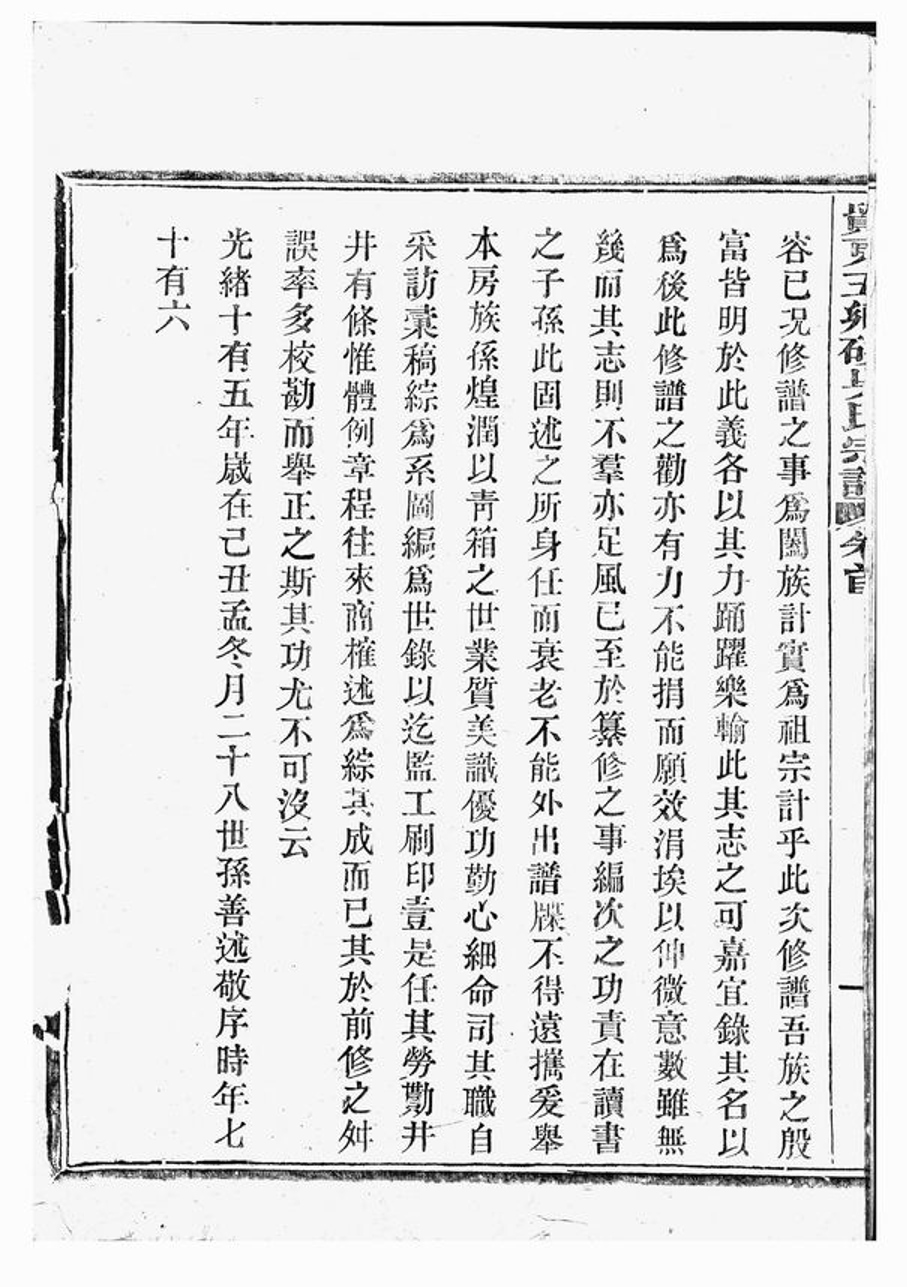 宗譜 卷首
一
容已况修譜之事爲闔族計實爲祖宗計乎此次修譜吾族之殷
富皆明於此義各以其力踊躍樂輸此其志之可嘉宜錄其名以
爲後此修譜之勸亦有力不能捐而願效涓埃以伸微意數雖無
幾而其志則不羣亦足風已至於纂修之事編次之功責在讀書
之子孫此固述之所身任而衰老不能外出譜牒不得遠攜爰舉
本房族孫煌潤以靑箱之世業質美識優功勤心細命司其職自
采訪彙稿綜爲系圖編爲世錄以迄監工刷印壹是任其勞勩井
井有條惟體例章程往來商榷述爲綜其成而已其於前修之舛
誤率多校勘而舉正之斯其功尤不可沒云
光緒十有五年歲在己丑孟冬月二十八世孫善述敬序時年七
十有六